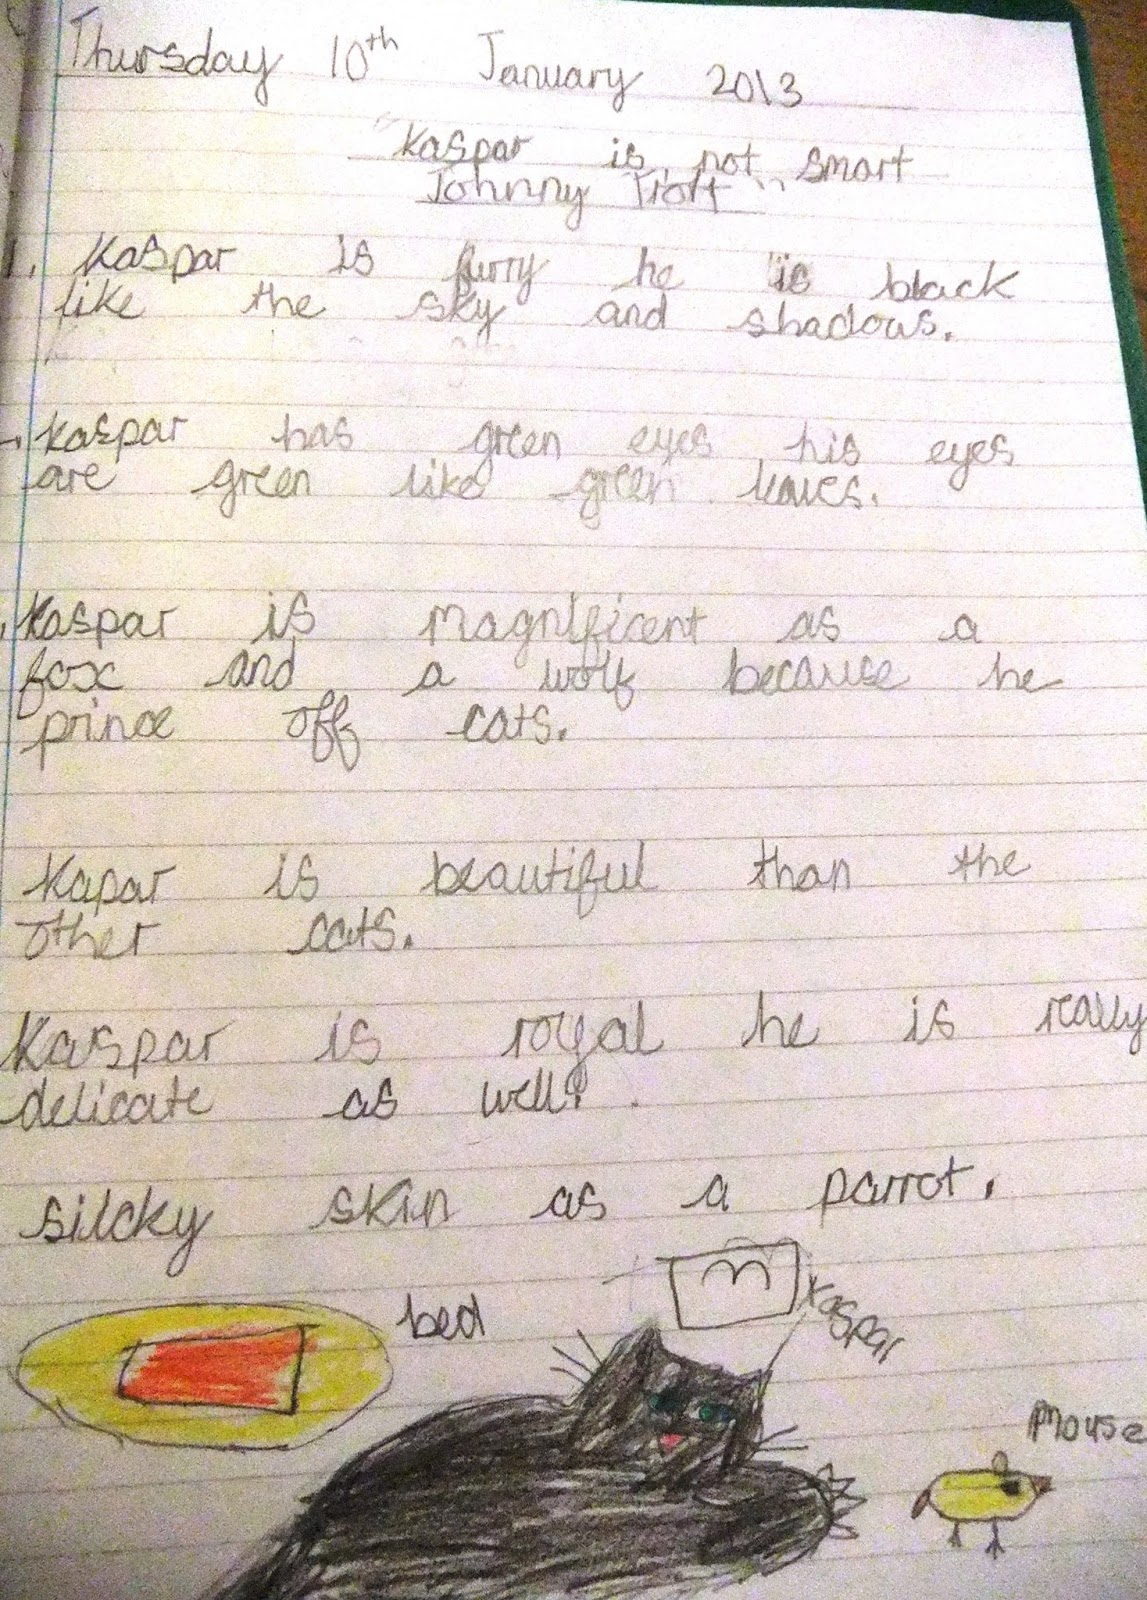 Thursday 10th January 2013
"Kaspar is not smart
Johnny Trott"
1. Kaspar is furry he is black
like the sky and shadows.
Kaspar has green eyes his eyes
are green like green leaves.
Kaspar is magnificent as a
fox and a wolf because he
prince off cats.
Kapar is beautiful than the
other cats.
Kaspar is royal he is really
delicate as well.
silcky skin as a parrot.
bed
Kaspar
Mouse